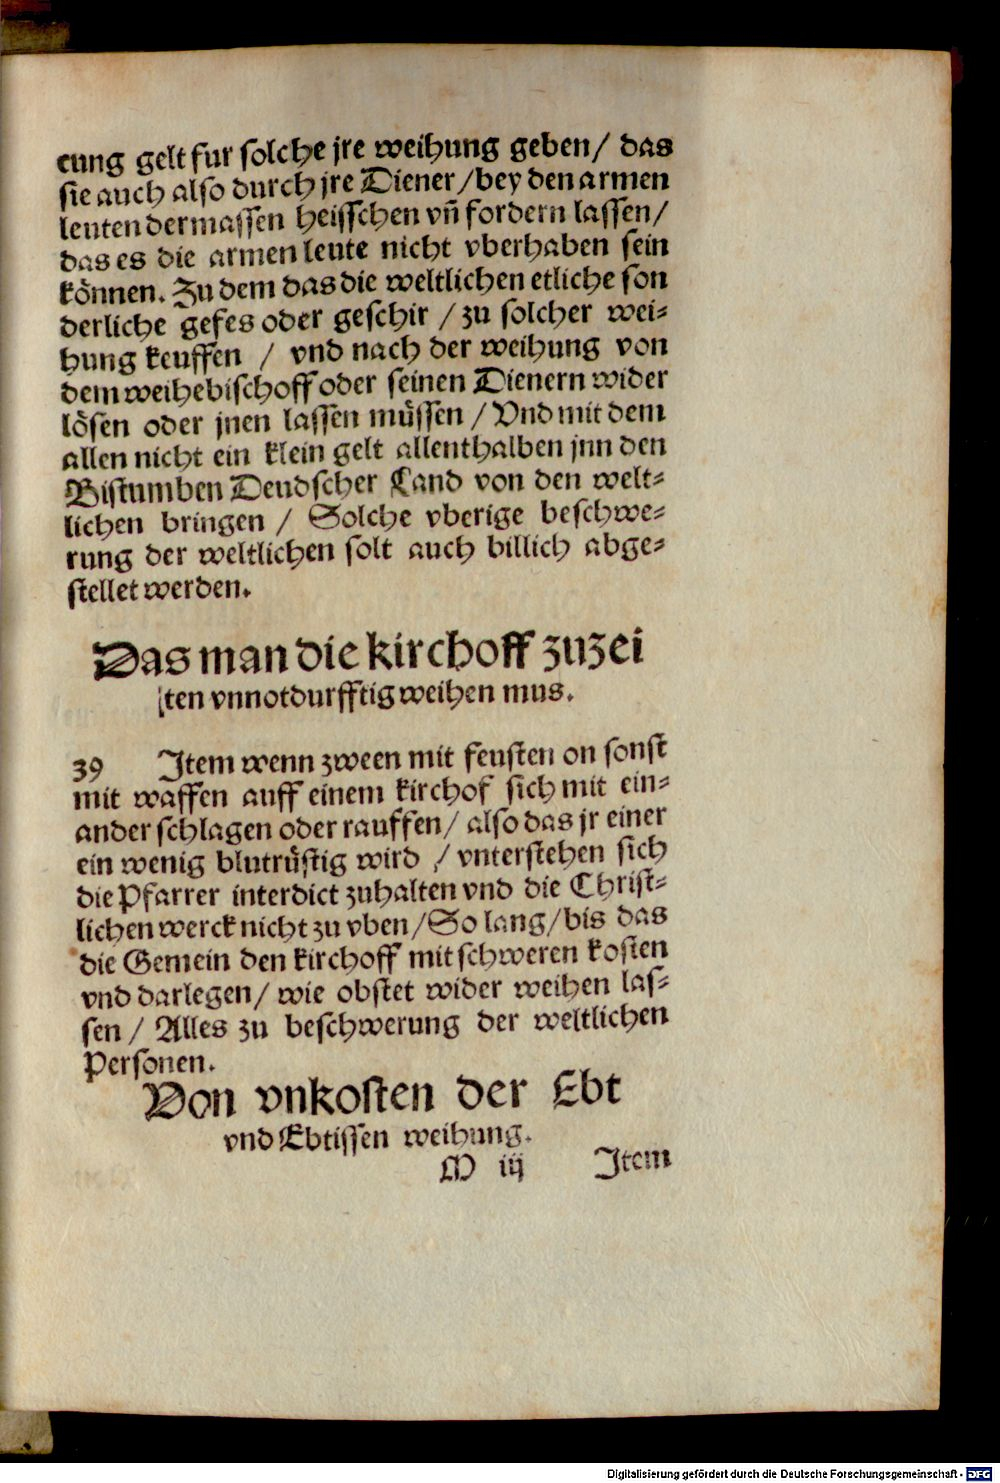 tung gelt fur solche jre weihung geben/ das
sie auch also durch jre Diener/bey den armen
leuten dermassen heisschen vñ fordern lassen/
das es die armen leute nicht vberhaben sein
können. Zu dem das die weltlichen etliche son
derliche gefes oder geschir / zu solcher wei⸗
hung keuffen / vnd nach der weihung von
dem weihebischoff oder seinen Dienern wider
lösen oder jnen lassen müssen / Vnd mit dem
allen nicht ein klein gelt allenthalben jnn den
Bistumben Deudscher Land von den welt⸗
lichen bringen / Solche vberige beschwe⸗
rung der weltlichen solt auch billich abge⸗
stellet werden.
Das man die kirchoff zuzei
ten vnnotdurfftig weihen mus.
39 Item wenn zween mit feusten on sonst
mit waffen auff einem kirchof sich mit ein⸗
ander schlagen oder rauffen/ also das jr einer
ein wenig blutrüstig wird / vnterstehen sich
die Pfarrer interdict zuhalten vnd die Christ⸗
lichen werck nicht zu vben/So lang/bis das
die Gemein den kirchoff mit schweren kosten
vnd darlegen/ wie obstet wider weihen las⸗
sen / Alles zu beschwerung der weltlichen
Personen.
Von vnkosten der Ebt
vnd Ebtissen weihung.
M iij Item
Digitalisierung gefördert durch die Deutsche Forschungsgemeinschaft - DFG